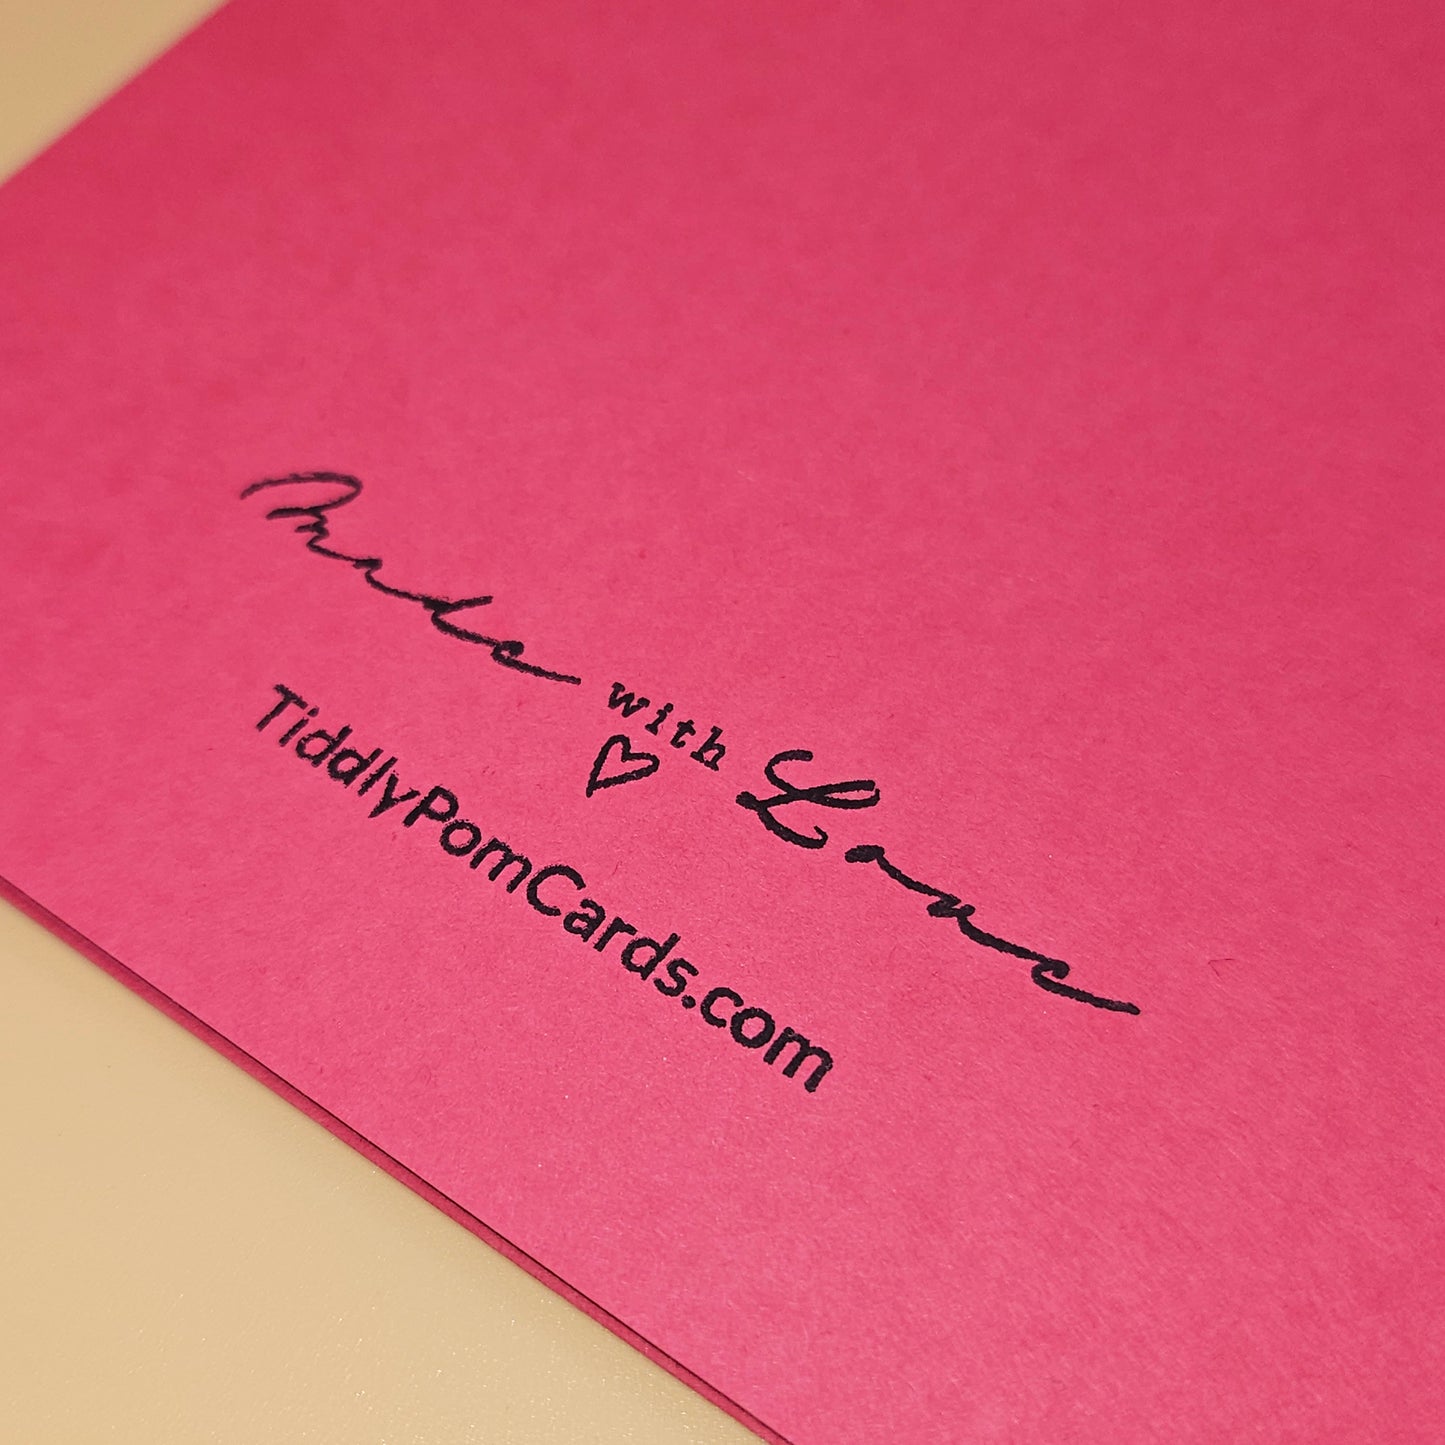 Made with Love
TiddlyPomCards.com